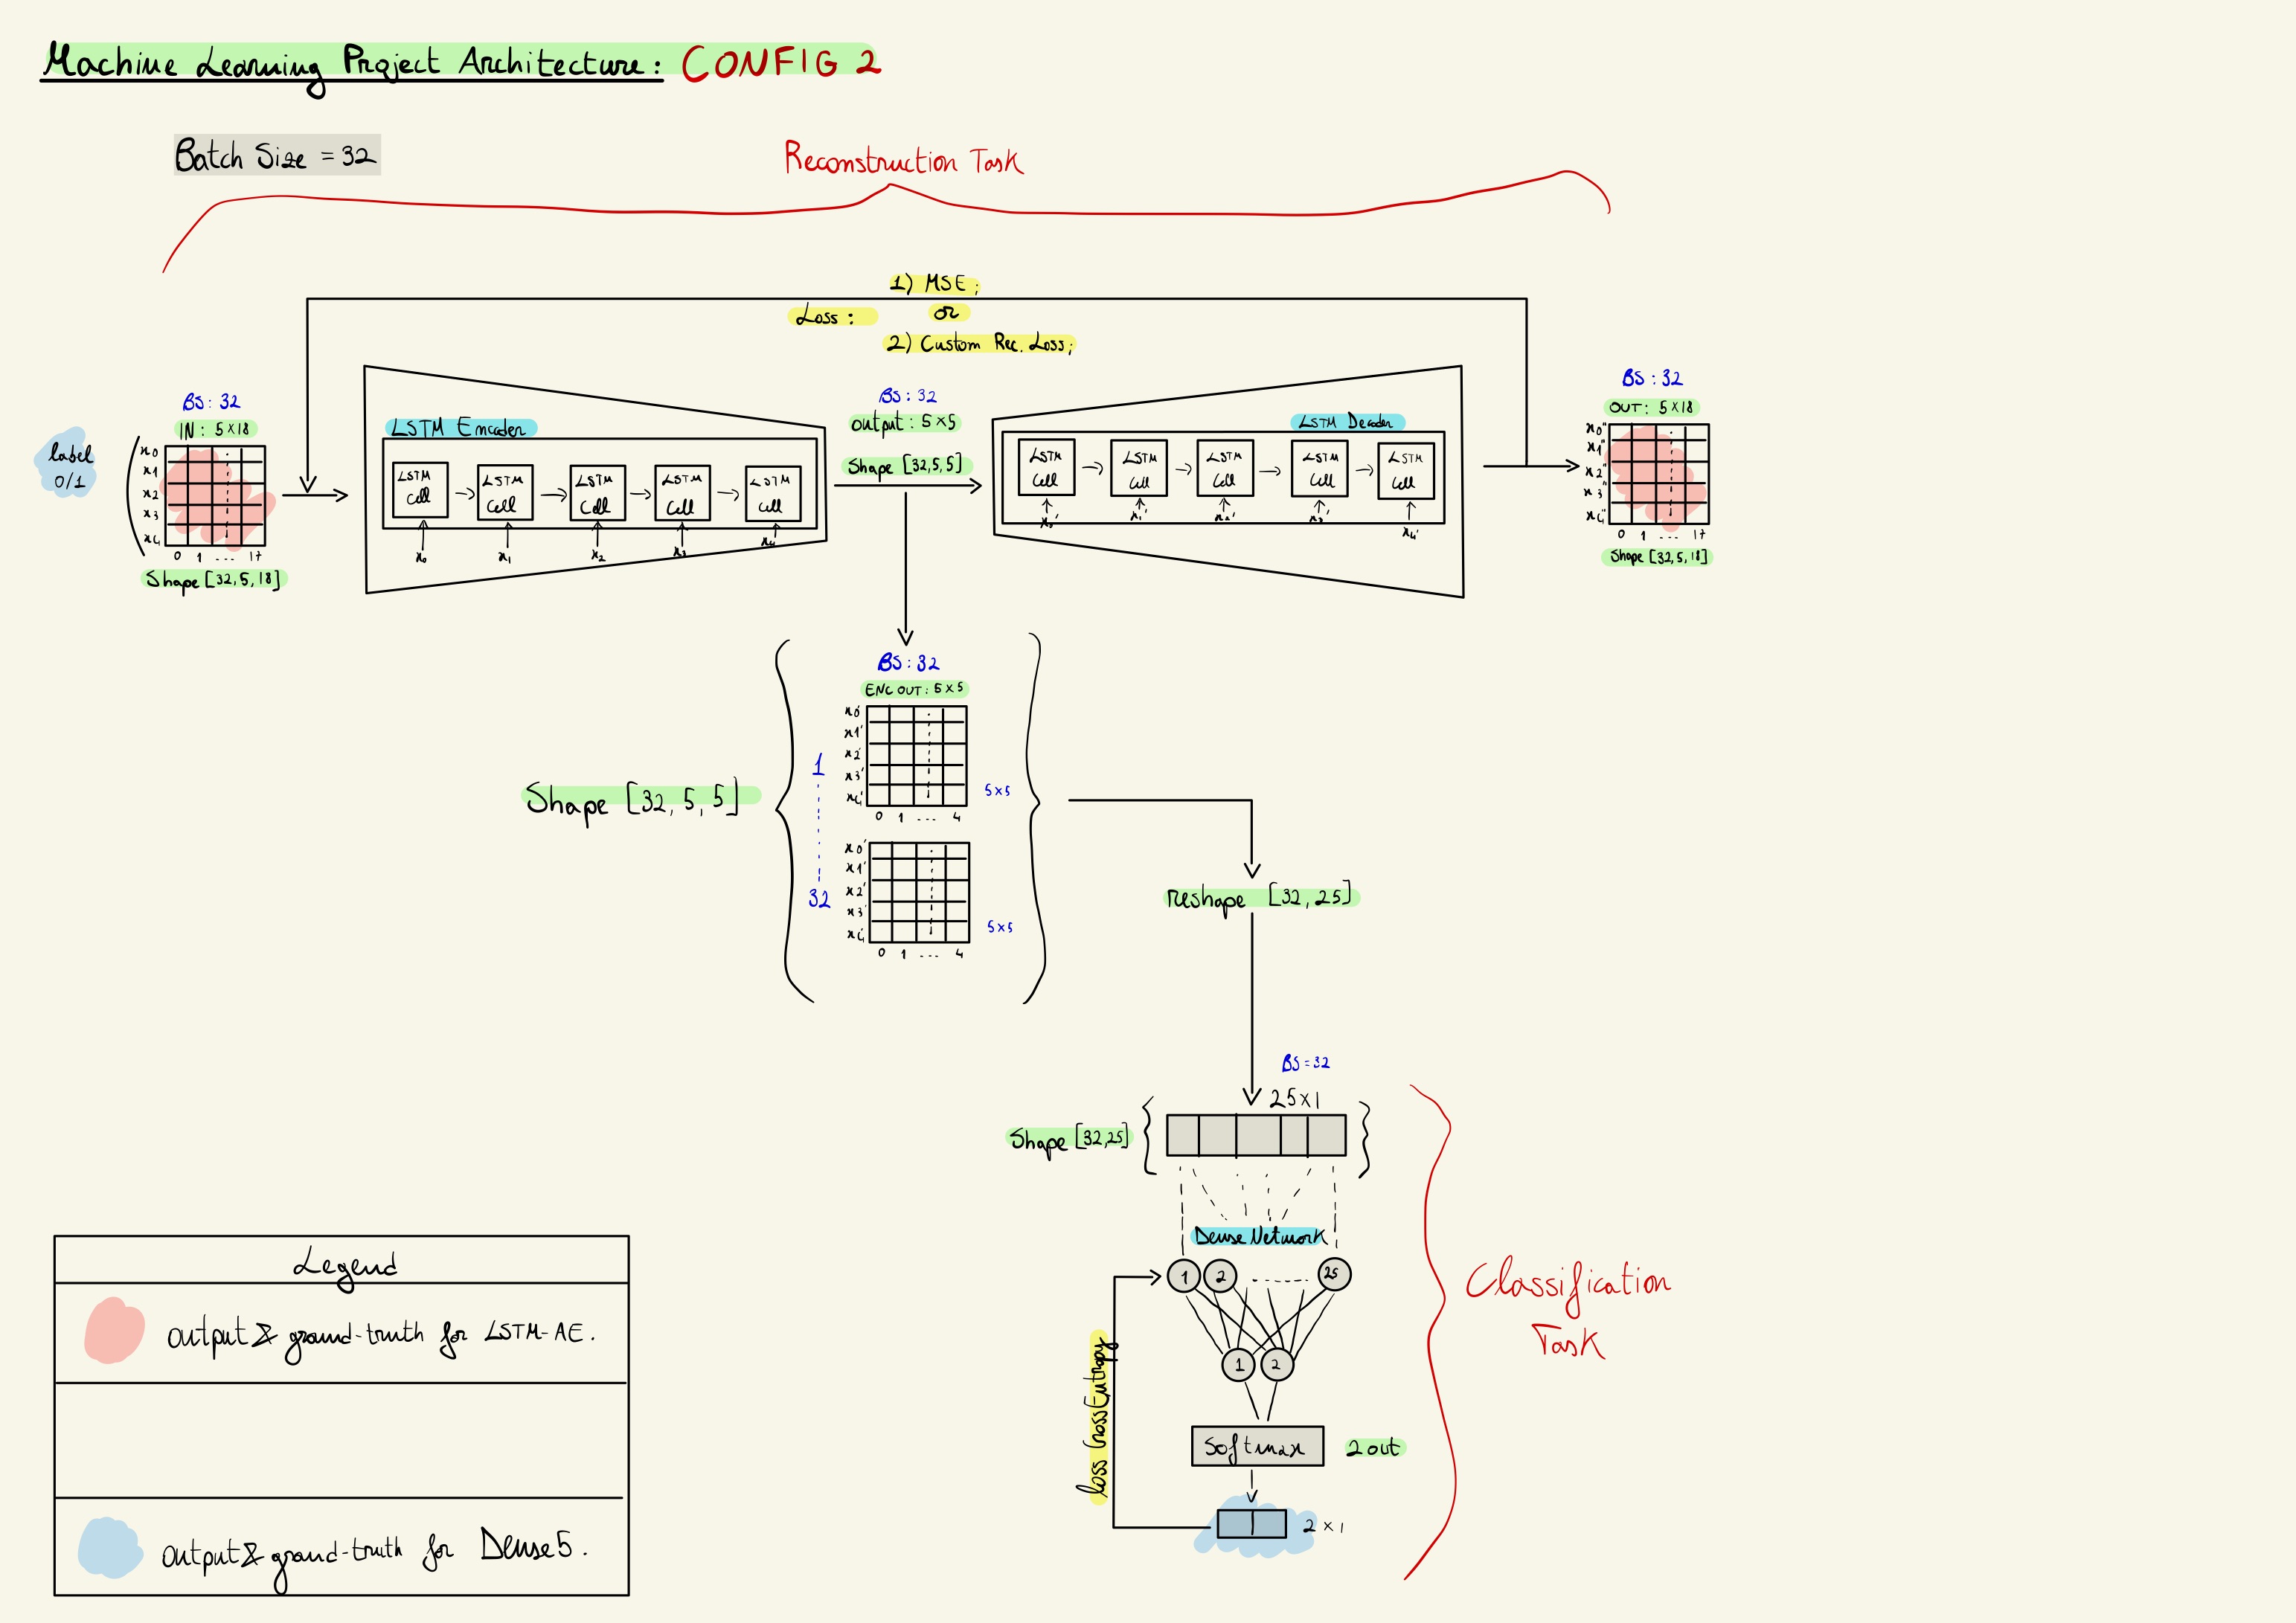 Machine Learning Project Architecture: CONFIG 2
Batch Size = 32
Reconstruction Task
1) MSE;
Loss: or
2) Custom Rec. Loss;
label
0/1
BS: 32
IN: 5x18
x0
x1
x2
x3
x4
0 1 ... 17
Shape [32,5,18]
LSTM Encoder
LSTM Cell
LSTM Cell
LSTM Cell
LSTM Cell
LSTM Cell
x0 x1 x2 x3 x4
BS: 32
output: 5x5
Shape [32,5,5]
LSTM Decoder
LSTM Cell
LSTM Cell
LSTM Cell
LSTM Cell
LSTM Cell
x0' x1' x2' x3' x4'
BS: 32
OUT: 5x18
x0"
x1"
x2"
x3"
x4"
0 1 ... 17
Shape [32,5,18]
Shape [32, 5, 5]
1
32
BS: 32
ENC OUT: 5x5
x0'
x1'
x2'
x3'
x4'
0 1 ... 4
5x5
x0'
x1'
x2'
x3'
x4'
0 1 ... 4
5x5
reshape [32, 25]
BS=32
25x1
Shape [32,25]
Dense Network
1 2 ... 25
1 2
Loss CrossEntropy
Softmax
2 out
2x1
Classification
Task
Legend
output & ground-truth for LSTM-AE.
output & ground-truth for Dense5.